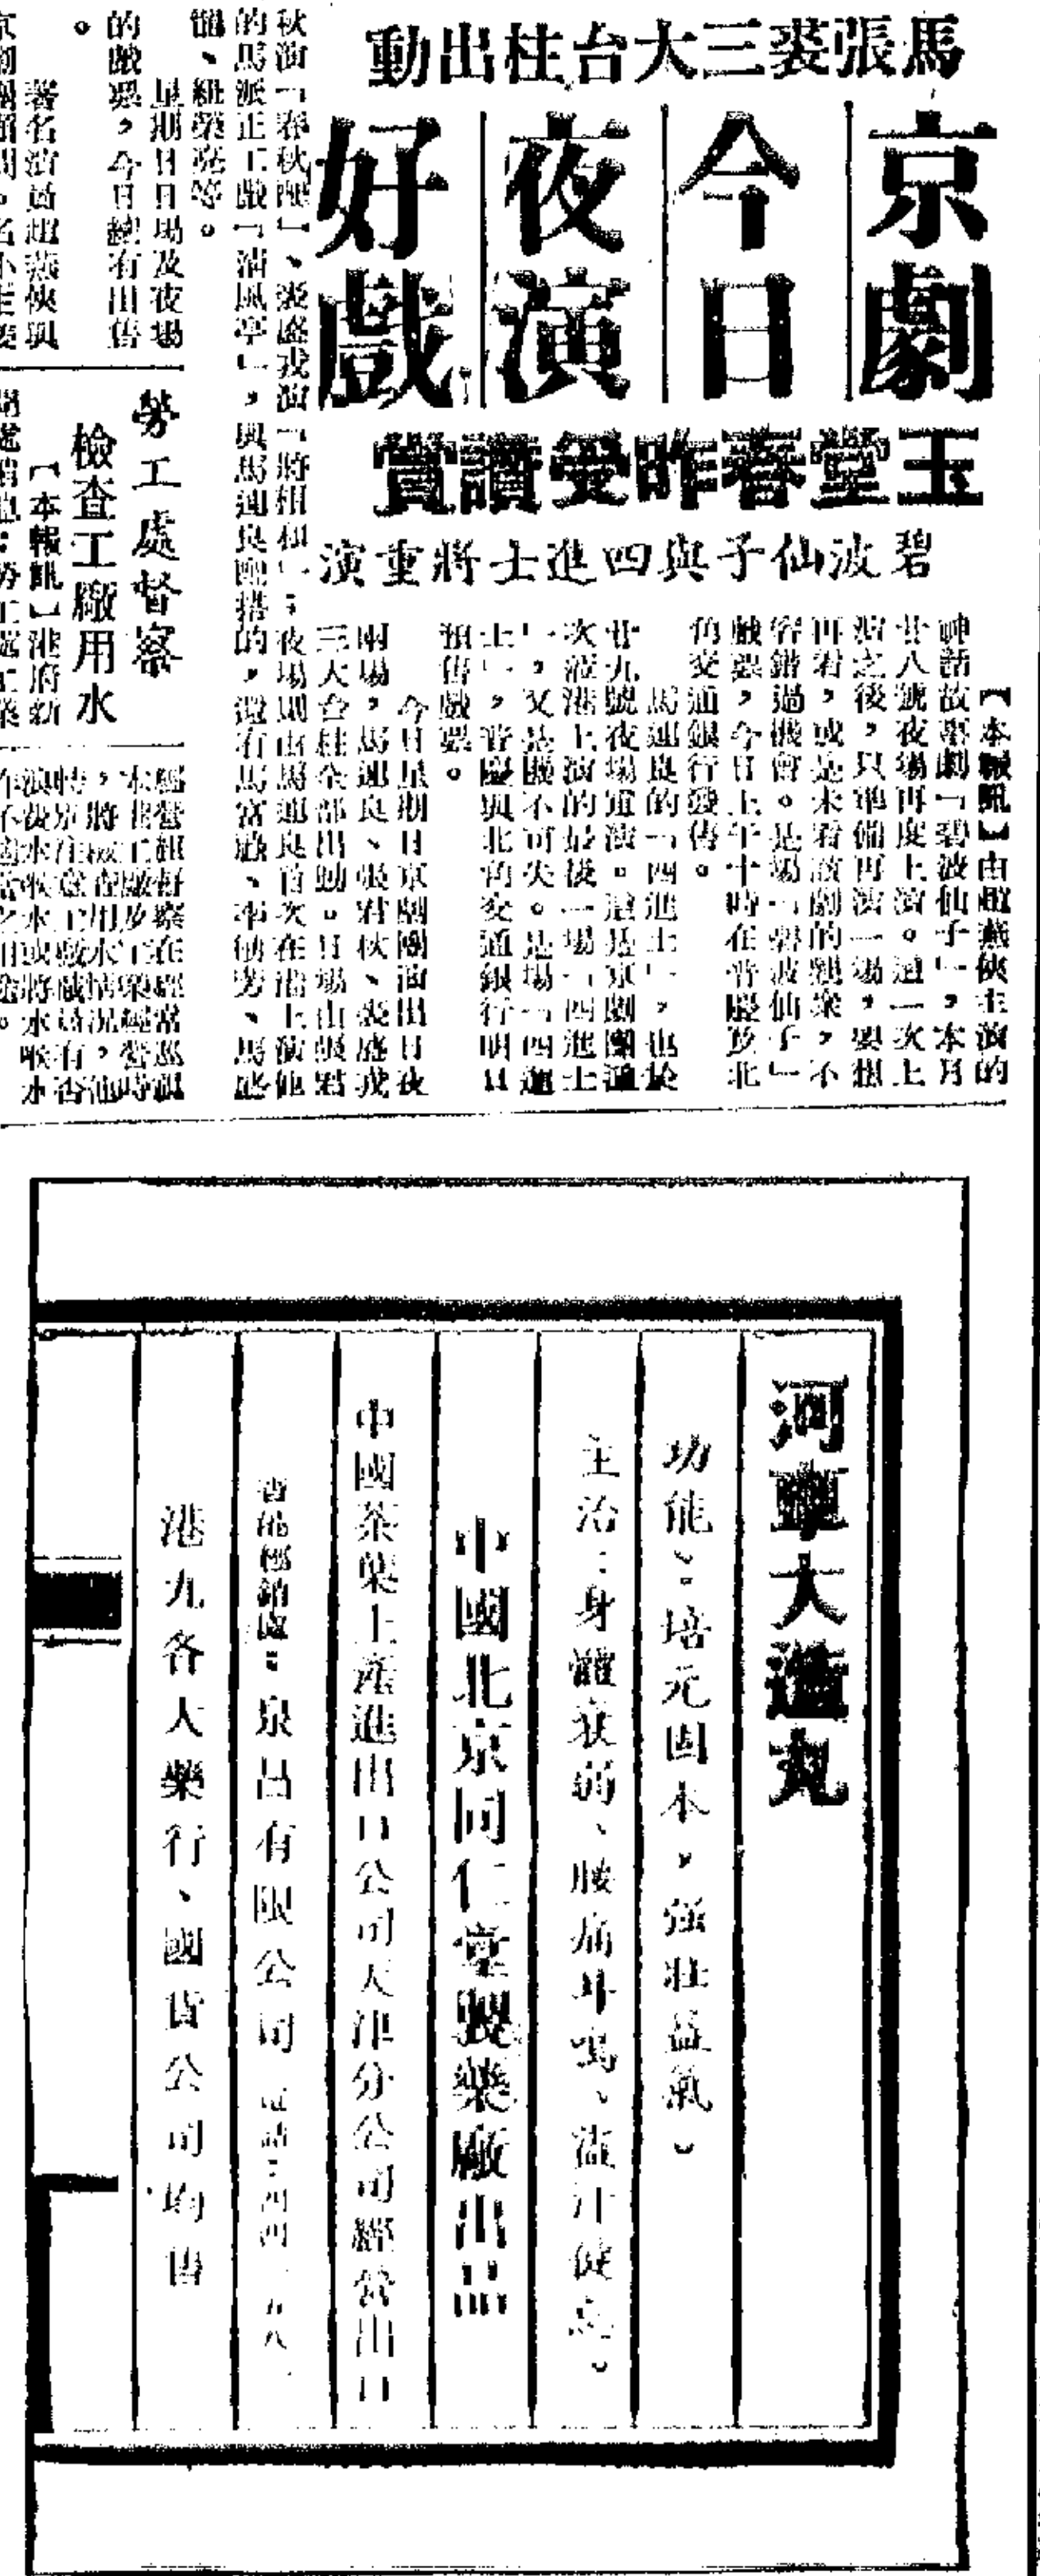 馬張裘三大台柱出動
京劇
今日
夜演
好戲
玉堂春昨受讚賞
碧波仙子與四進士將重演
【本報訊】由趙燕俠主演的
神話故事劇「碧波仙子」，本月
廿八號夜場再度上演。這一次上
演之後，只準備再演一場，要想
再看，或是未看該劇的觀衆，不
容錯過機會。是場「碧波仙子」
戲票，今日上午十時在普慶及北
角交通銀行發售。
馬連良的「四進士」，也於
廿九號夜場重演。這是京劇團這
次蒞港上演的最後一場「四進士
」，又是機不可失。是場「四進
士」，普慶與北角交通銀行明日
預售戲票。
今日星期日京劇團演出日夜
兩場，馬連良、張君秋、裘盛戎
三大台柱全部出動。日場由張君
秋演「春秋配」、裘盛戎演「將相和」；夜場則由馬連良首次在港上演他
的馬派正工戲「清風亭」，與馬連良配搭的，還有馬富祿、李慕芳、馬盛
龍、鈕榮亮等。
星期日日場及夜場
的戲票，今日續有出售
。
著名演員趙燕俠與
勞工處督察
檢查工廠用水
【本報訊】港府新
經營組督察在經常巡視
河車大造丸
功能：培元固本，強壯益氣。
主治：身體衰弱、腰痛耳鳴、盜汗健忘。
中國北京同仁堂製藥廠出品
中國茶葉土產進出口公司天津分公司經營出口
香港經銷處：泉昌有限公司 電話：四四一五八一
港九各大藥行、國貨公司均售